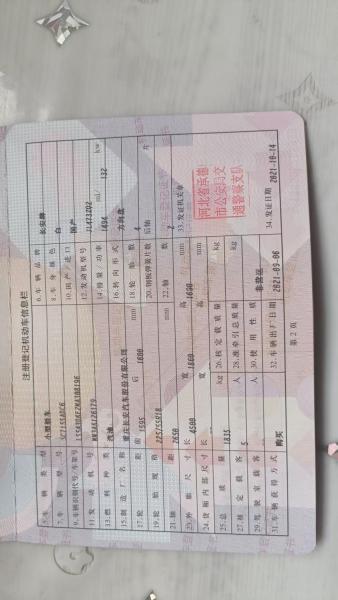 注册登记机动车信息栏
5.车辆类型 小型轿车 6.车辆品牌 长安牌
7.车辆型号 8.车身颜色 白
9.车辆识别代号/车架号 10.国产/进口 国产
11.发动机号 12.发动机型号 JL473ZQ2
13.燃料种类 汽油 14.排量/功率 1494 ml/ 132 kw
15.制造厂名称 重庆长安汽车股份有限公司 16.转向形式 方向盘
17.轮距 前 1595 后 1600 mm 18.轮胎数 4
19.轮胎规格 225/55R18 20.钢板弹簧片数 后轴 片
21.轴距 2650 mm 22.轴数 2
23.外廓尺寸 长 4500 宽 1800 高 1600 mm
24.货厢内部尺寸 长 宽 高 mm
25.总质量 1835 kg 26.核定载质量 kg
27.核定载客 5 人 28.准牵引总质量 kg
29.驾驶室载客 人 30.使用性质 非营运
31.车辆获得方式 购买 32.车辆出厂日期 2021-09-06
33.发证机关章
河北省承德
市公安局交
通警察支队
34.发证日期 2021-10-14
第 2 页